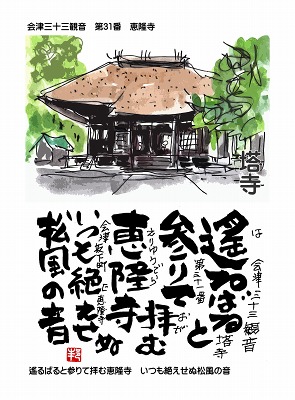 会津三十三観音　第31番　恵隆寺
塔寺
会津三十三観音
塔寺
は
遙るばると
第三十一番
参りて拝む
おが
恵隆寺
会津坂下町
恵隆寺
いつも絶えせぬ
松風の音
遙るばると参りて拝む恵隆寺　いつも絶えせぬ松風の音